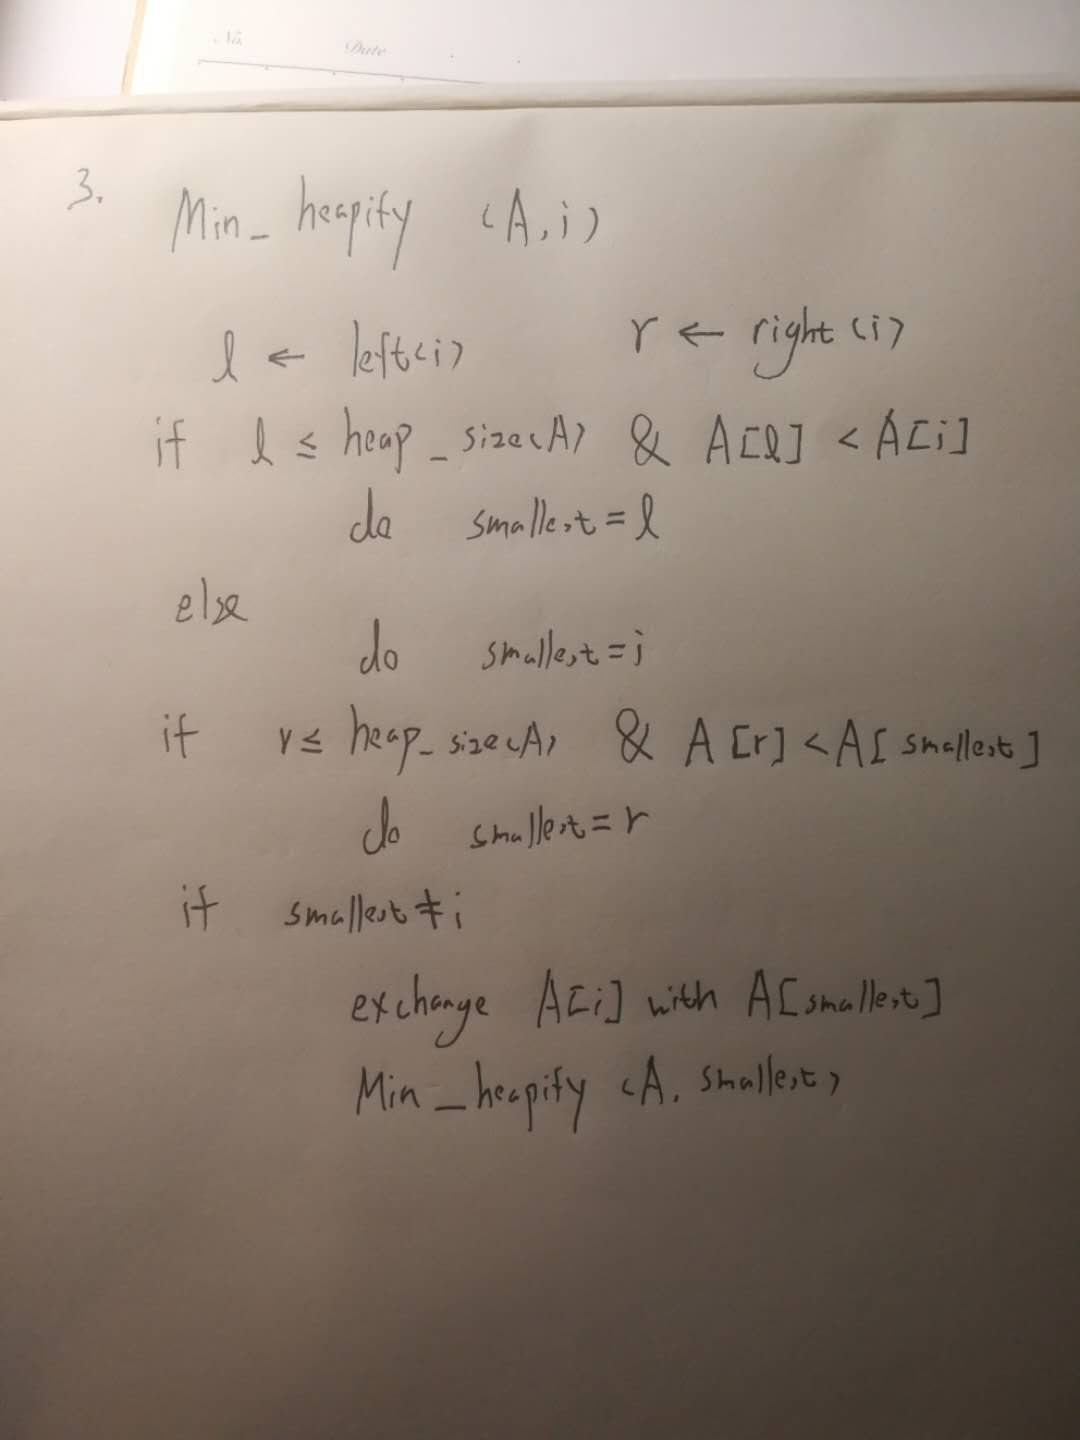 No. Date
3. Min_heapify (A,i)
l ← left(i) r ← right(i)
if l ≤ heap_size(A) & A[l] < A[i]
do smallest = l
else
do smallest = i
if r ≤ heap_size(A) & A[r] < A[smallest]
do smallest = r
if smallest ≠ i
exchange A[i] with A[smallest]
Min_heapify (A, smallest)